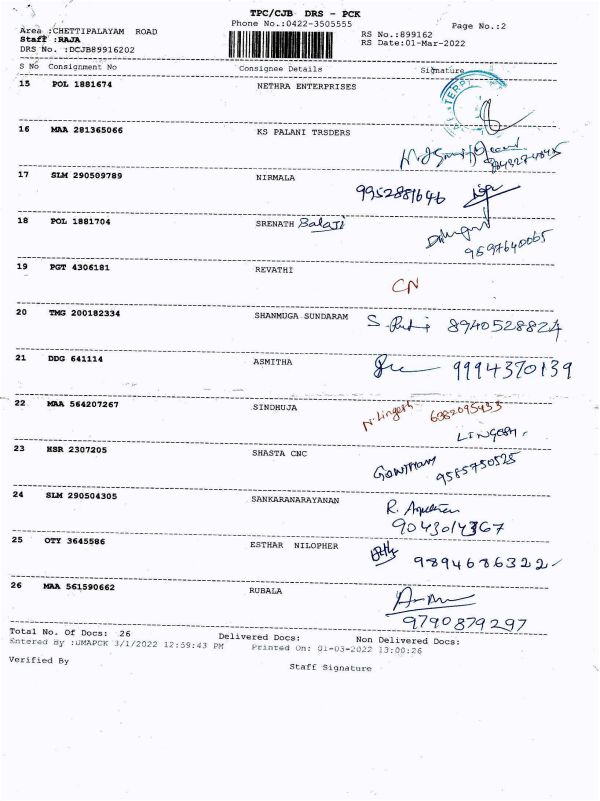 TPC/CJB DRS - PCK
Phone No.:0422-3505555
Page No.:2
Area :CHETTIPALAYAM ROAD
RS No.:899162
Staff :RAJA
RS Date:01-Mar-2022
DRS No. :DCJB89916202
S No Consignment No Consignee Details Signature
15 POL 1881674 NETHRA ENTERPRISES
16 MAA 281365066 KS PALANI TRSDERS
17 SLM 290509789 NIRMALA 9952881646
18 POL 1881704 SRENATH Balaji
9597640065
19 PGT 4306181 REVATHI CN
20 TMG 200182334 SHANMUGA SUNDARAM S 8940528824
21 DDG 641114 ASMITHA 9994370139
22 MAA 564207267 SINDHUJA N.Lingesh 6382095433
LINGESH.
23 HSR 2307205 SHASTA CNC GOWTHAM 9585750525
24 SLM 290504305 SANKARANARAYANAN R.
9043014367
25 OTY 3645586 ESTHAR NILOPHER 9894686322
26 MAA 561590662 RUBALA
9790879297
Total No. Of Docs: 26 Delivered Docs: Non Delivered Docs:
Entered By :UMAPCK 3/1/2022 12:59:43 PM Printed On: 01-03-2022 13:00:26
Verified By Staff Signature